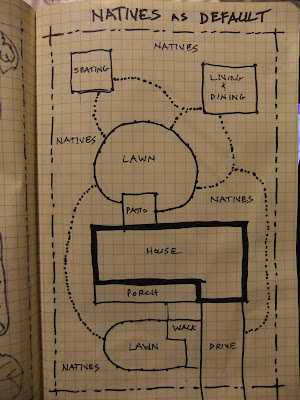 NATIVES AS DEFAULT
NATIVES
SEATING
LIVING
&
DINING
NATIVES
LAWN
NATIVES
PATIO
HOUSE
PORCH
WALK
LAWN
DRIVE
NATIVES